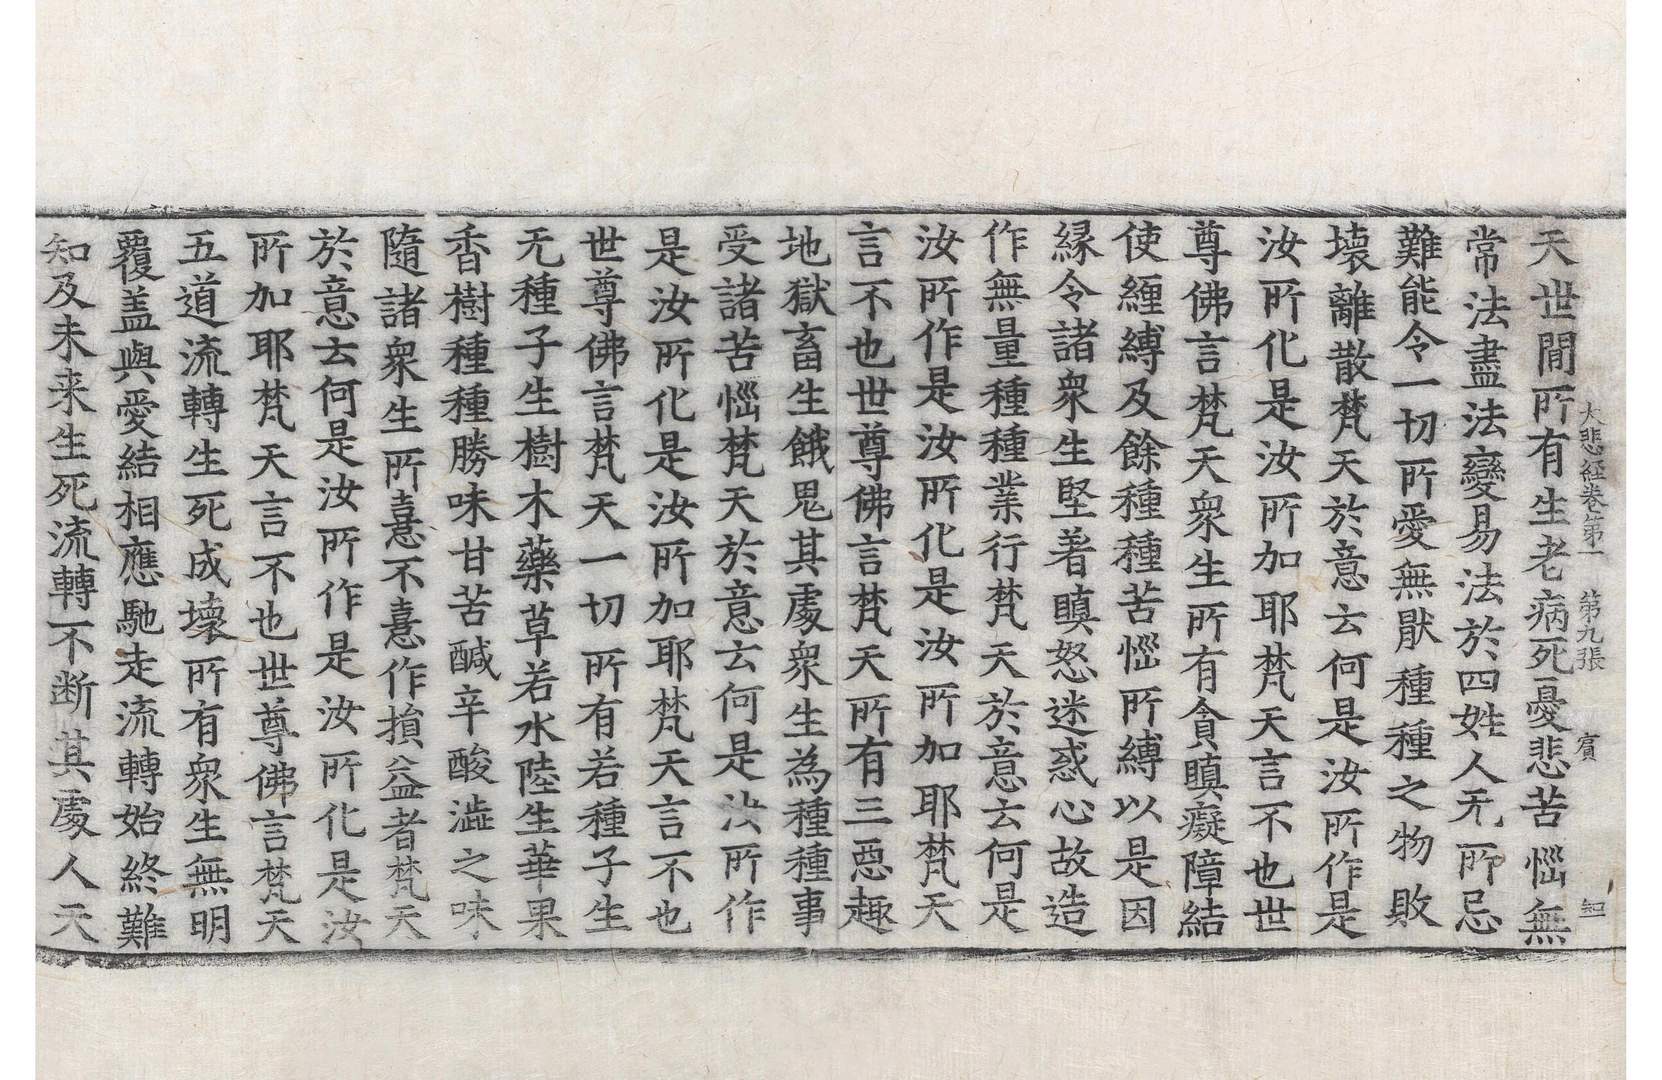 大悲經卷第一　第九張　賓　知
天世間所有生老病死憂悲苦惱無
常法盡法變易法於四姓人无所忌
難能令一切所愛無猒種種之物敗
壞離散梵天於意云何是汝所作是
汝所化是汝所加耶梵天言不也世
尊佛言梵天衆生所有貪瞋癡障結
使纏縛及餘種種苦惱所縛以是因
縁令諸衆生堅著瞋怒迷惑心故造
作無量種種業行梵天於意云何是
汝所作是汝所化是汝所加耶梵天
言不也世尊佛言梵天所有三惡趣
地獄畜生餓鬼其處衆生為種種事
受諸苦惱梵天於意云何是汝所作
是汝所化是汝所加耶梵天言不也
世尊佛言梵天一切所有若種子生
无種子生樹木藥草若水陸生華果
香樹種種勝味甘苦醎辛酸澁之味
隨諸衆生所憙不憙作損益者梵天
於意云何是汝所作是汝所化是汝
所加耶梵天言不也世尊佛言梵天
五道流轉生死成壞所有衆生無明
覆盖與愛結相應馳走流轉始終難
知及未来生死流轉不断其處人天